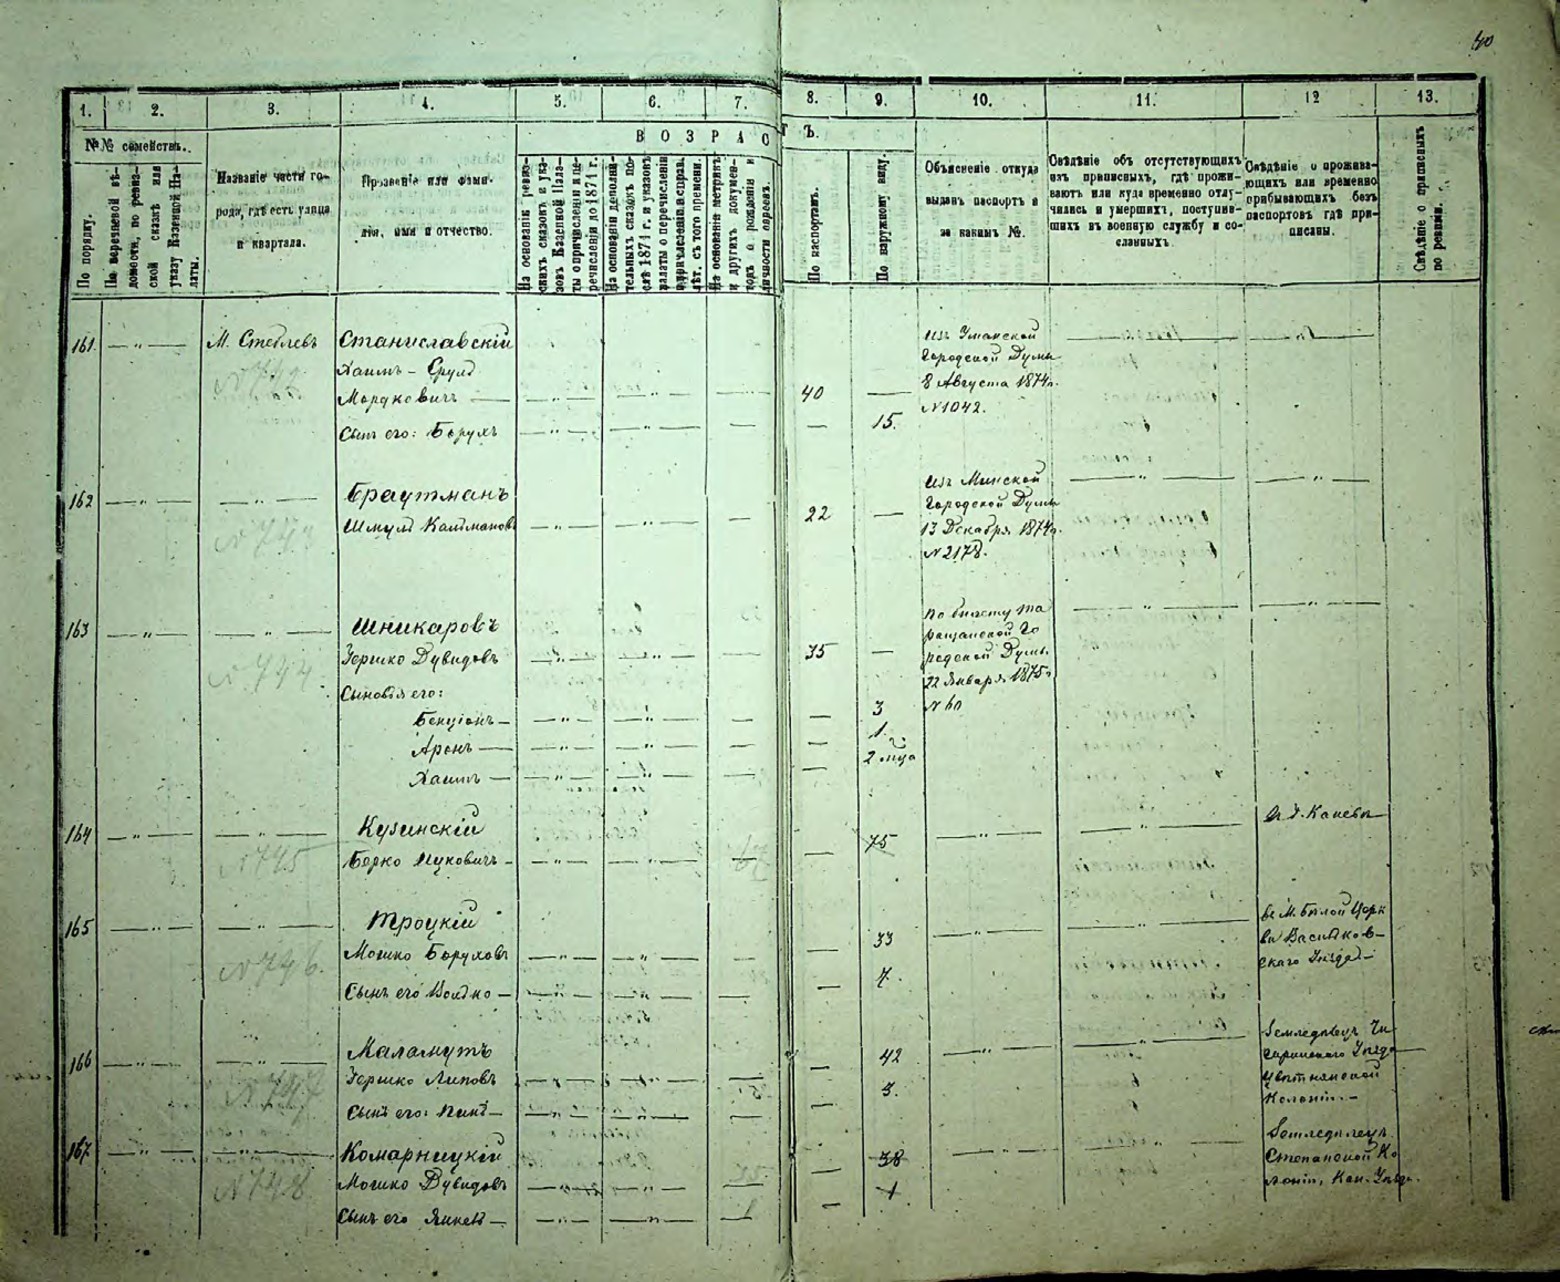 40
1. 2. 3. 4. 5. 6. 7. 8. 9. 10. 11. 12 13.
№№ семействъ.
В О З Р А С Т Ъ.
По порядку.
По перечневой вѣ-
домости, по ревиз-
ской сказкѣ или
указу Казенной Па-
латы.
Названіе части го-
рода, гдѣ есть улица
и кварталъ.
Прозвеніе или фами-
лія, имя и отчество.
На основаніи ревиз-
скихъ сказокъ и ука-
зовъ Казенной Пала-
ты о причисленіи и пе-
речисленіи до 1871 г.
На основаніи дополни-
тельныхъ сказокъ по-
слѣ 1871 г. и указовъ
палаты о перечисленіи
и причисленіи и справ.
лѣт. съ того времени.
На основаніи метрикъ
и другихъ докумен-
товъ о рожденіи и
личности евреевъ.
По паспортамъ.
По наружному виду.
Объясненіе откуда
выданъ паспортъ и
за какимъ №.
Свѣдѣніе объ отсутствующихъ
изъ приписныхъ, гдѣ прожи-
ваютъ или куда временно отлу-
чились и умершихъ, поступив-
шихъ въ военную службу и со-
сланныхъ.
Свѣдѣніе о прожива-
ющихъ или временно
прибывающихъ безъ
паспортовъ гдѣ при-
писаны.
Свѣдѣніе о приписныхъ
по ревизіи.
161. — " — М. Стеблевъ Станиславскій
Хаимъ - Срулъ
Мордковичъ — 40 —
Сынъ его: Борухъ — 15.
изъ Уманской
Городской Думы
8 Августа 1874 г.
№ 1042.
№ 742
162 — " — Браутманъ
Шмулъ Калмановъ 22 —
изъ Минской
Городской Думы
13 Декабря 1874 г.
№ 2178.
163 — " — Шникаровъ
Гершко Дувидовъ 35 —
Сыновья его:
Бенціонъ — 3
Аронъ — 1.
Хаимъ — 2 мца
по билету Та
ращанской Го
родской Думы
22 Января 1875 г.
№ 60
№ 744
164 — " — Кузинскій
Берко Ицковичъ — 75
изъ г. Канева
№ 745
165 — " — Троцкій
Мошко Боруховъ 33
Сынъ его Волько — 7.
въ М. Бѣлой Церк
ви Васильков-
скаго Уѣзда —
№ 746.
166 — " — Маламутъ
Гершко Липовъ 42
Сынъ его: — 3.
Земледѣлецъ Чи
гиринскаго Уѣзда
Колоніи. —
№ 747
167 — " — Комарницкій
Мошко Дувидовъ 38
Сынъ его Янкель — 1
Земледѣлецъ
Степановской Ко
лоніи, Кан. Уѣзда.
№ 748